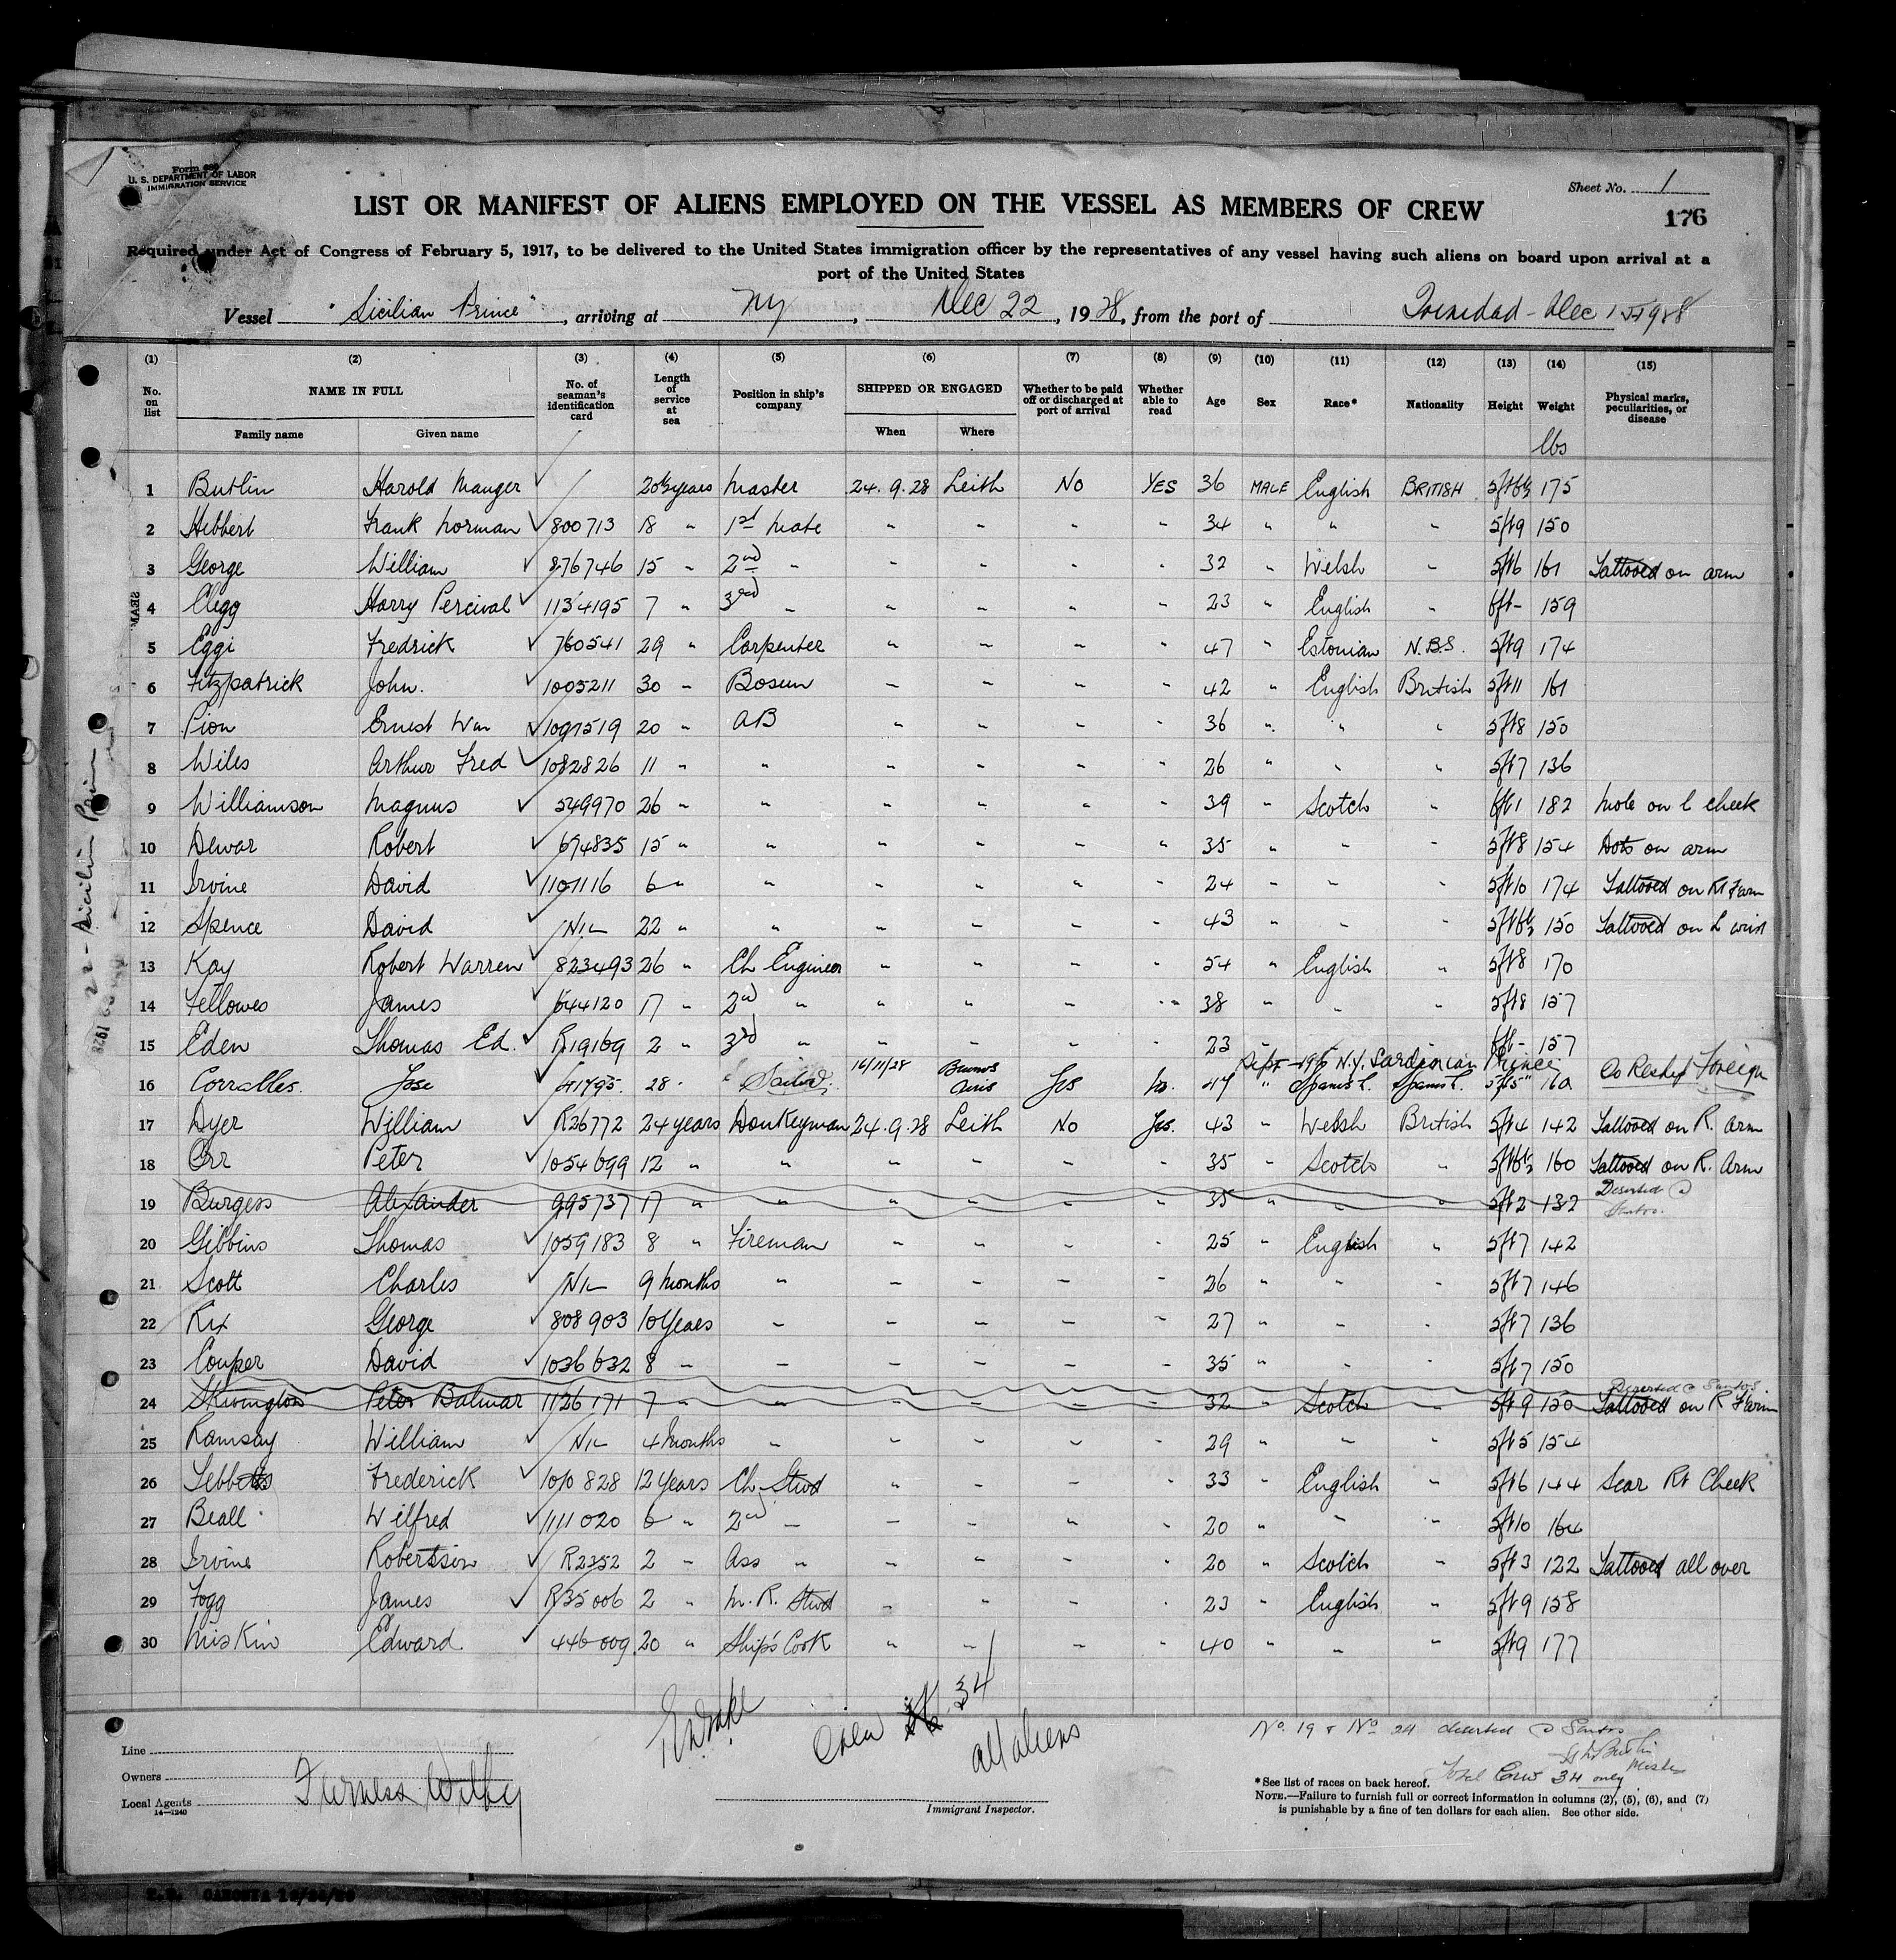 Form 680
U. S. DEPARTMENT OF LABOR
IMMIGRATION SERVICE
Sheet No. 1
LIST OR MANIFEST OF ALIENS EMPLOYED ON THE VESSEL AS MEMBERS OF CREW
176
Required under Act of Congress of February 5, 1917, to be delivered to the United States immigration officer by the representatives of any vessel having such aliens on board upon arrival at a
port of the United States
Vessel "Sicilian Prince", arriving at NY, Dec 22, 1928, from the port of Trinidad - Dec
(1) (2) (3) (4) (5) (6) (7) (8) (9) (10) (11) (12) (13) (14) (15)
No. on list NAME IN FULL No. of seaman's identification card Length of service at sea Position in ship's company SHIPPED OR ENGAGED Whether to be paid off or discharged at port of arrival Whether able to read Age Sex Race* Nationality Height Weight Physical marks, peculiarities, or disease
Family name Given name When Where
lbs
1 Butlin Harold Mauger 20½ years Master 24.9.28 Leith No YES 36 MALE English BRITISH 5ft6½ 175
2 Hibbert Frank Norman 800713 18 " 1st Mate " " " " 34 " " " 5ft9 150
3 George William 876746 15 " 2nd " " " " " 32 " Welsh " 5ft6 161 Tattooed on arm
4 Clegg Harry Percival 1134195 7 " 3rd " " " " " 23 " English " 6ft- 159
5 Eggi Fredrick 760541 29 " Carpenter " " " " 47 " Estonian N.B.S. 5ft9 174
6 Fitzpatrick John. 1005211 30 " Bosun " " " " 42 " English British 5ft11 161
7 Pion Ernest Wm 1097519 20 " AB " " " " 36 " " " 5ft8 150
8 Wiles Arthur Fred 1082826 11 " " " " " " 26 " " " 5ft7 136
9 Williamson Magnus 549970 26 " " " " " " 39 " Scotch " 6ft1 182 Mole on l cheek
10 Dewar Robert 674835 15 " " " " " " 35 " " " 5ft8 154 Dots on arm
11 Irvine David 1101116 6 " " " " " " 24 " " " 5ft10 174 Tattooed on Rt Farm
12 Spence David NIL 22 " " " " " " 43 " " " 5ft6½ 150 Tattooed on L wrist
13 Kay Robert Warren 823493 26 " Ch Engineer " " " " 54 " English " 5ft8 170
14 Fellowes James 644120 17 " 2nd " " " " " 38 " " " 5ft8 157
15 Eden Thomas Ed. R19169 2 " 3rd " " " " " 23 6ft- 157
N.Y. Sardinian Prince
16 Corralles. Jose 28 " Sailor 16/11/28 Buenos Aires Yes 47 " Spanish. Spanish. 5ft5" 160 Foreign
17 Dyer William R26772 24 years Donkeyman 24.9.28 Leith No Yes. 43 " Welsh British 5ft4 142 Tattooed on R. Arm
18 Orr Peter 1054699 12 " " " " " " 35 " Scotch " 5ft6½ 160 Tattooed on R. Arm
19 Burgess Alexander 995737 17 " " " " " " 35 " " " 5ft2 132 Deserted @ Santos.
20 Gibbins Thomas 1059183 8 " Fireman " " " " 25 " English " 5ft7 142
21 Scott Charles NIL 9 Months " " " " " 26 " " " 5ft7 146
22 Rix George 808903 10 Years " " " " " 27 " " " 5ft7 136
23 Couper David 1036632 8 " " " " " " 35 " " " 5ft7 150
24 Skivington Peter Balmar 1126171 7 " " " " " " 32 " Scotch " 5ft9 150 Deserted @ Santos Tattooed on R Farm
25 Ramsay William NIL 4 Months " " " " " 29 " " " 5ft5 154
26 Tebbetts Frederick 1010828 12 Years Ch Stwd " " " " 33 " English " 5ft6 144 Scar Rt Cheek
27 Beall Wilfred 1111020 6 " 2nd " " " " " 20 " " " 5ft10 164
28 Irvine Robertson R2352 2 " Ass " " " " " 20 " Scotch " 5ft3 122 Tattooed all over
29 Fogg James R35006 2 " M.R. Stwd " " " " 23 " English " 5ft9 158
30 Miskin Edward 446009 20 " Ship's Cook " " " " 40 " " " 5ft9 177
22 - Sicilian Prince
1928
Crew 34
all aliens
No. 19 & No 24 deserted @ Santos
Butlin
Master
Total Crew 34 only
Line
Owners
Local Agents Furness Withy
14—1240
Immigrant Inspector.
*See list of races on back hereof.
NOTE.—Failure to furnish full or correct information in columns (2), (5), (6), and (7)
is punishable by a fine of ten dollars for each alien. See other side.